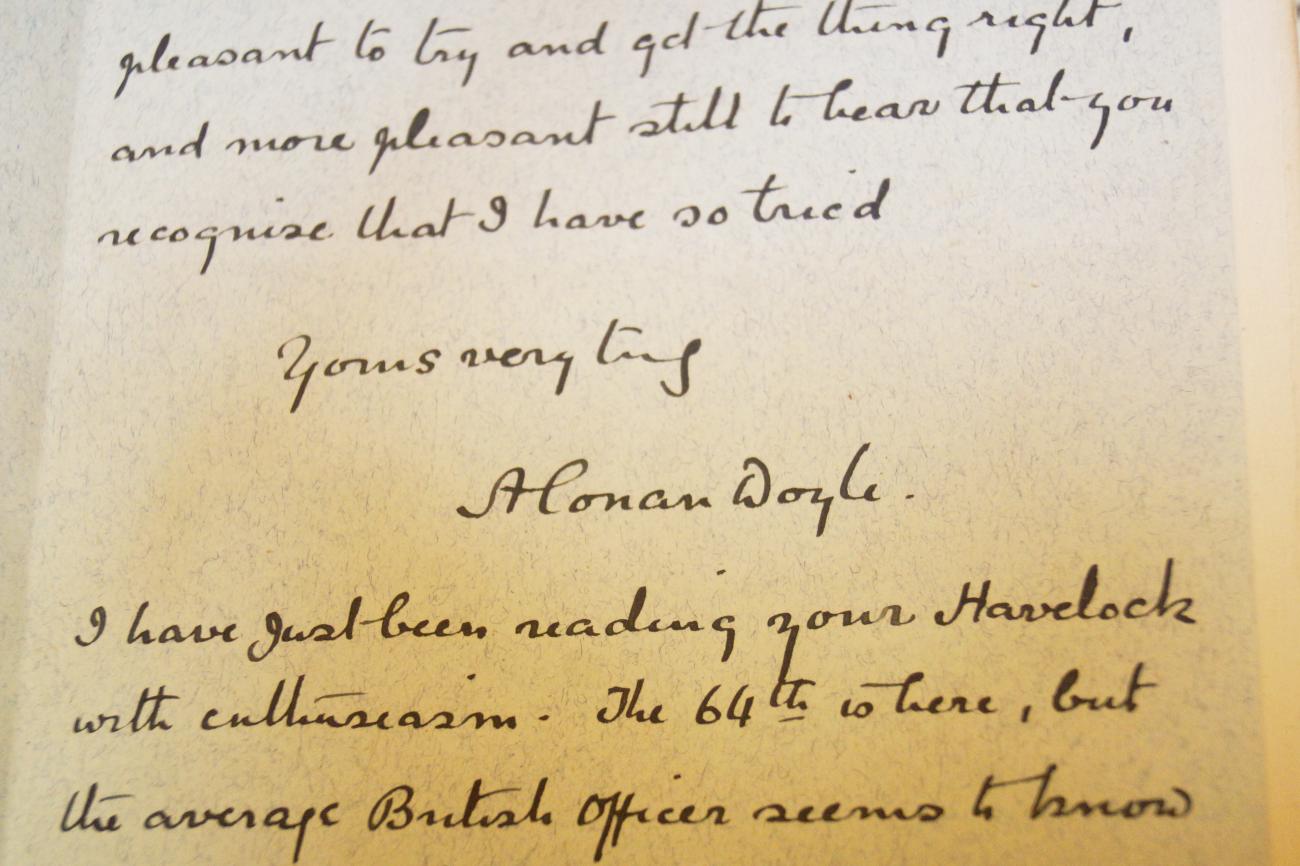 pleasant to try and get the thing right,
and more pleasant still to hear that you
recognise that I have so tried
Yours very truly
A Conan Doyle.
I have just been reading your Havelock
with enthusiasm. The 64th is here, but
the average British Officer seems to know